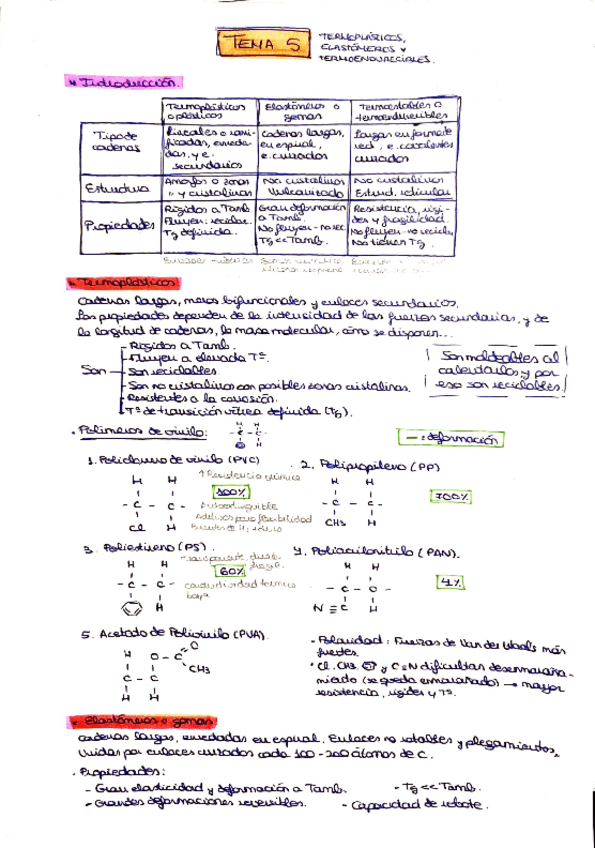 TEMA 5
TERMOPLÁSTICOS,
ELASTÓMEROS Y
TERMOENDURECIBLES.
Introducción.
Termoplásticos o plásticos | Elastómeros o gomas | Termoestables o termoendurecibles
Tipo de cadenas | lineales o ramificadas, enredadas, y e. secundarios | Cadenas largas, en espiral, e. cruzados | Largas en forma de red, e. covalentes cruzados
Estructura | Amorfos o zonas " y cristalinas | No cristalinos Vulcanizado | No cristalinos Estruct. reticular
Propiedades | Rígidos a Tamb Fluyen: reciclar. Tg definida. | Gran deformación a Tamb. No fluyen - no rec. Tg << Tamb. | Resistencia, rigidez y fragilidad. No fluyen - no recicla No tienen Tg.
Termoplásticos
Cadenas largas, meros bifuncionales y enlaces secundarios.
Las propiedades dependen de la intensidad de las fuerzas secundarias, y de
la longitud de cadenas, la masa molecular, cómo se disponen...
Son
Rígidos a Tamb.
Fluyen a elevada Tª.
Son reciclables.
Son no cristalinos con posibles zonas cristalinas.
Resistentes a la corrosión.
Tª de transición vítrea definida (Tg).
Son moldeables al
calentarlos y por
eso son reciclables.
Polímeros de vinilo:
H H
- C - C -
H
— : deformación
1. Policloruro de vinilo (PVC)
↑ Resistencia química
100%
Autoextinguible
Aditivos para flexibilidad
H H
- C - C -
Cl H
2. Polipropileno (PP)
700%
H H
- C - C -
CH3 H
3. Poliestireno (PS).
60%
conductividad térmica
baja
H H
- C - C -
H
4. Poliacilonitrilo (PAN).
4%
H H
- C - C -
N ≡ C H
5. Acetado de Polivinilo (PVA).
H O - C = O
CH3
C - C
H H
- Polaridad: Fuerzas de Van der Waals más
fuertes.
Cl, CH3 y C≡N dificultan desenmaraña-
miado (se queda enmarañado) → mayor
resistencia, rigidez y Tª.
Elastómeros o gomas
Cadenas largas, enredadas en espiral. Enlaces no rotables y plegamientos,
Unidas por enlaces cruzados cada 100 - 200 átomos de C.
Propiedades:
- Gran elasticidad y deformación a Tamb.
- Tg << Tamb.
- Grandes deformaciones reversibles.
- Capacidad de rebote.